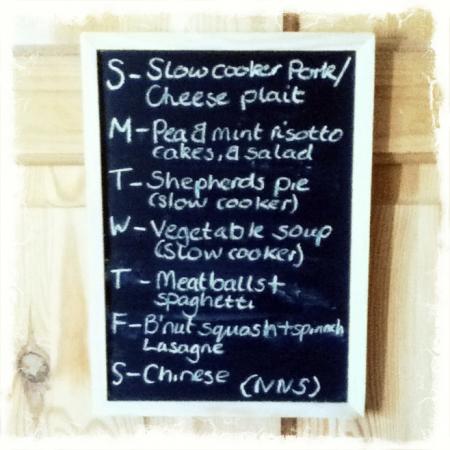 S- Slow cooker Pork/
Cheese plait
M- Pea & mint risotto
cakes, & salad
T- Shepherds pie
(slow cooker)
W- Vegetable soup
(slow cooker)
T - Meatballs +
spaghetti
F- B'nut squash + spinach
Lasagne
S- Chinese (NNS)